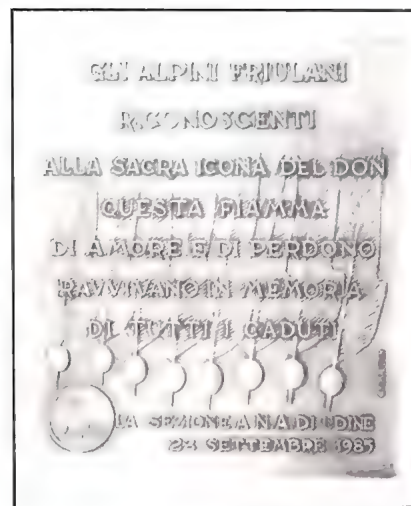 GLI ALPINI FRIULANI
RICONOSCENTI
ALLA SACRA ICONA DEL DON
QUESTA FIAMMA
DI AMORE E DI PERDONO
RAVVIVANO IN MEMORIA
DI TUTTI I CADUTI
LA SEZIONE A.N.A. DI UDINE
22 SETTEMBRE 1985